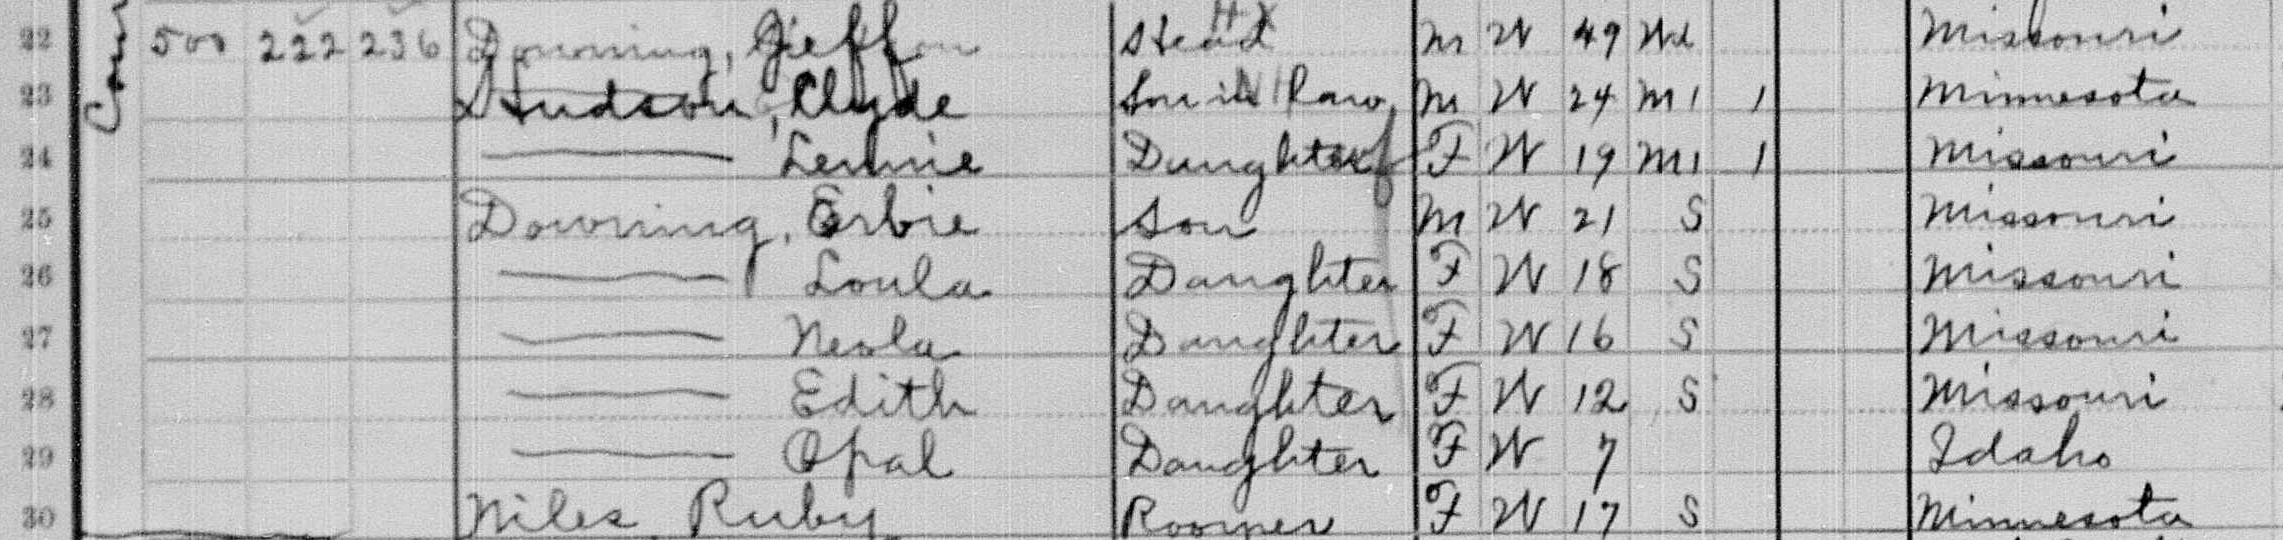 22 500 222 236 Downing, Jeffson Head M W 49 Wd Missouri
23 Hudson, Clyde Son in law M W 24 M 1 1 Minnesota
24 Lennie Daughter F W 19 M 1 1 Missouri
25 Downing, Orbie Son M W 21 S Missouri
26 Loula Daughter F W 18 S Missouri
27 Neola Daughter F W 16 S Missouri
28 Edith Daughter F W 12 S Missouri
29 Opal Daughter F W 7 Idaho
30 Niles Ruby Roomer F W 17 S Minnesota